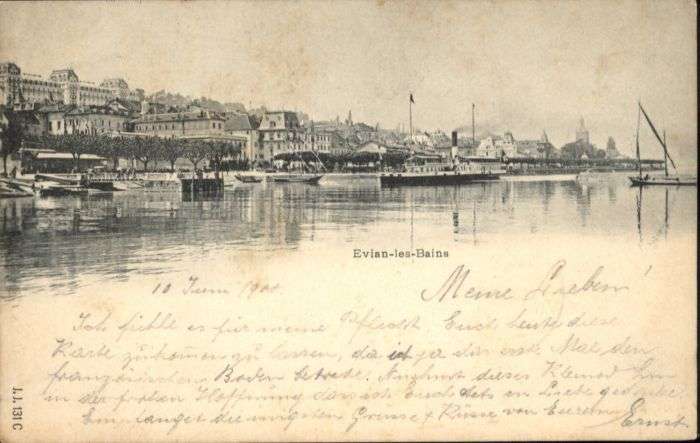 Evian-les-Bains
10 Juni 190
Meine Lieben!
Ich fühle es für meine Pflicht Euch heute diese
Karte zukommen zu lassen, da ich ja das erste Mal den
französischen Boden betrete. Nehmt dieses Kleinod
in der frohen Hoffnung dass ich Euch stets in Liebe gedenke
Empfanget die innigsten Grüsse + Küsse von Eurem Ernst
J.J. 131 C